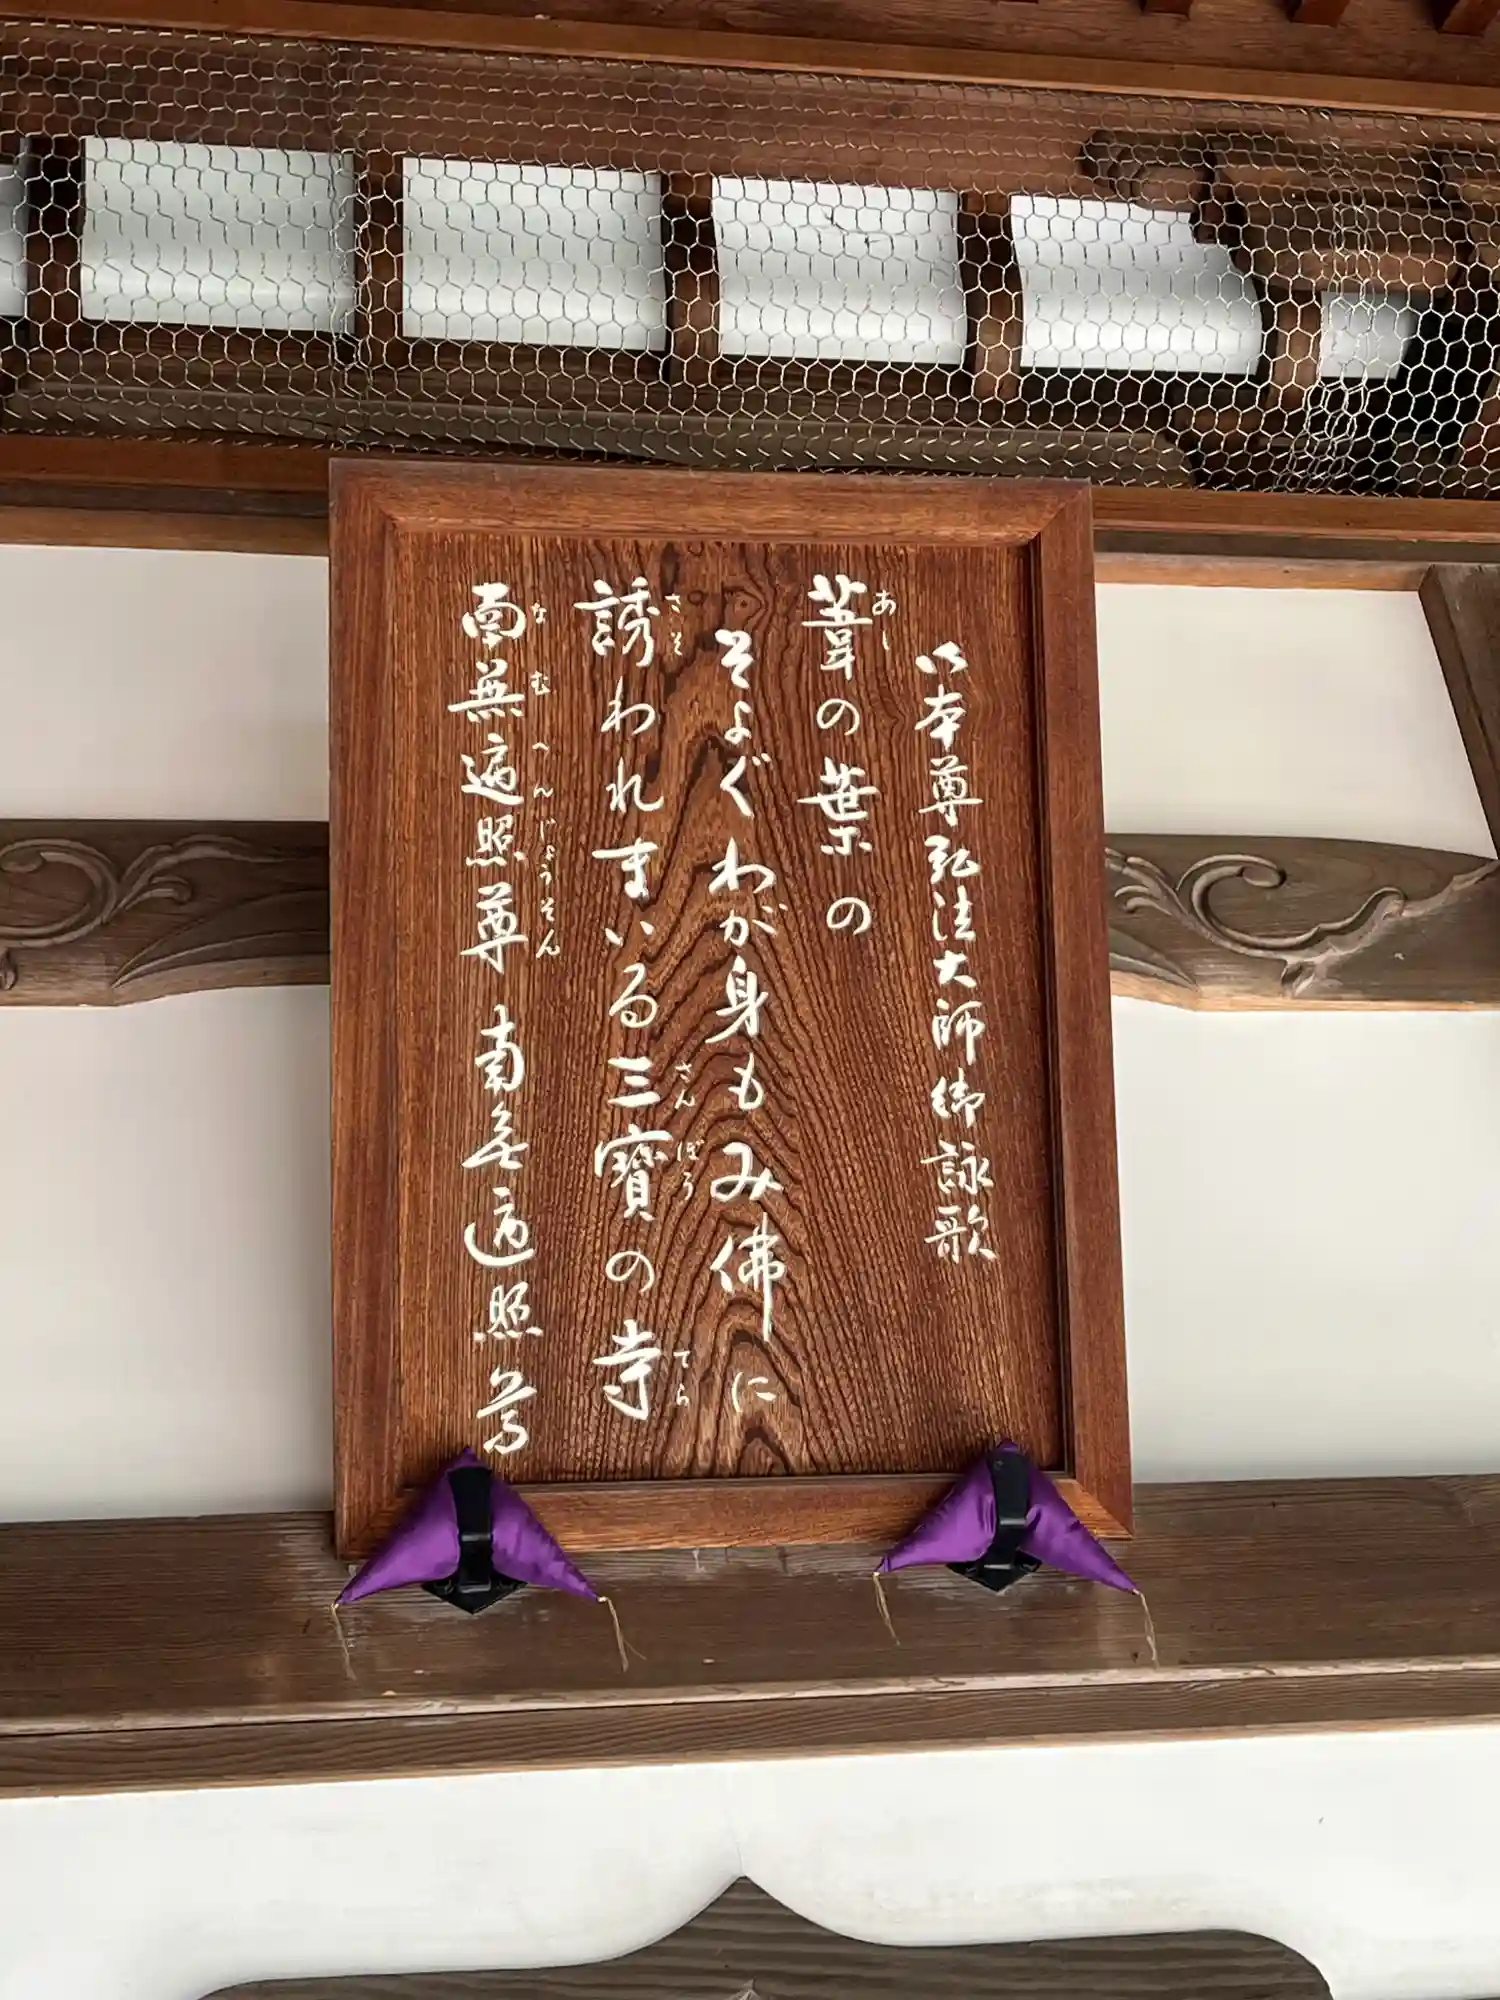 御本尊弘法大師御詠歌
葦の葉の
そよぐわが身もみ佛に
誘われまいる三寶の寺
南無遍照尊 南無遍照尊
あし
さそ
さんぼう
てら
なむへんじょうそん